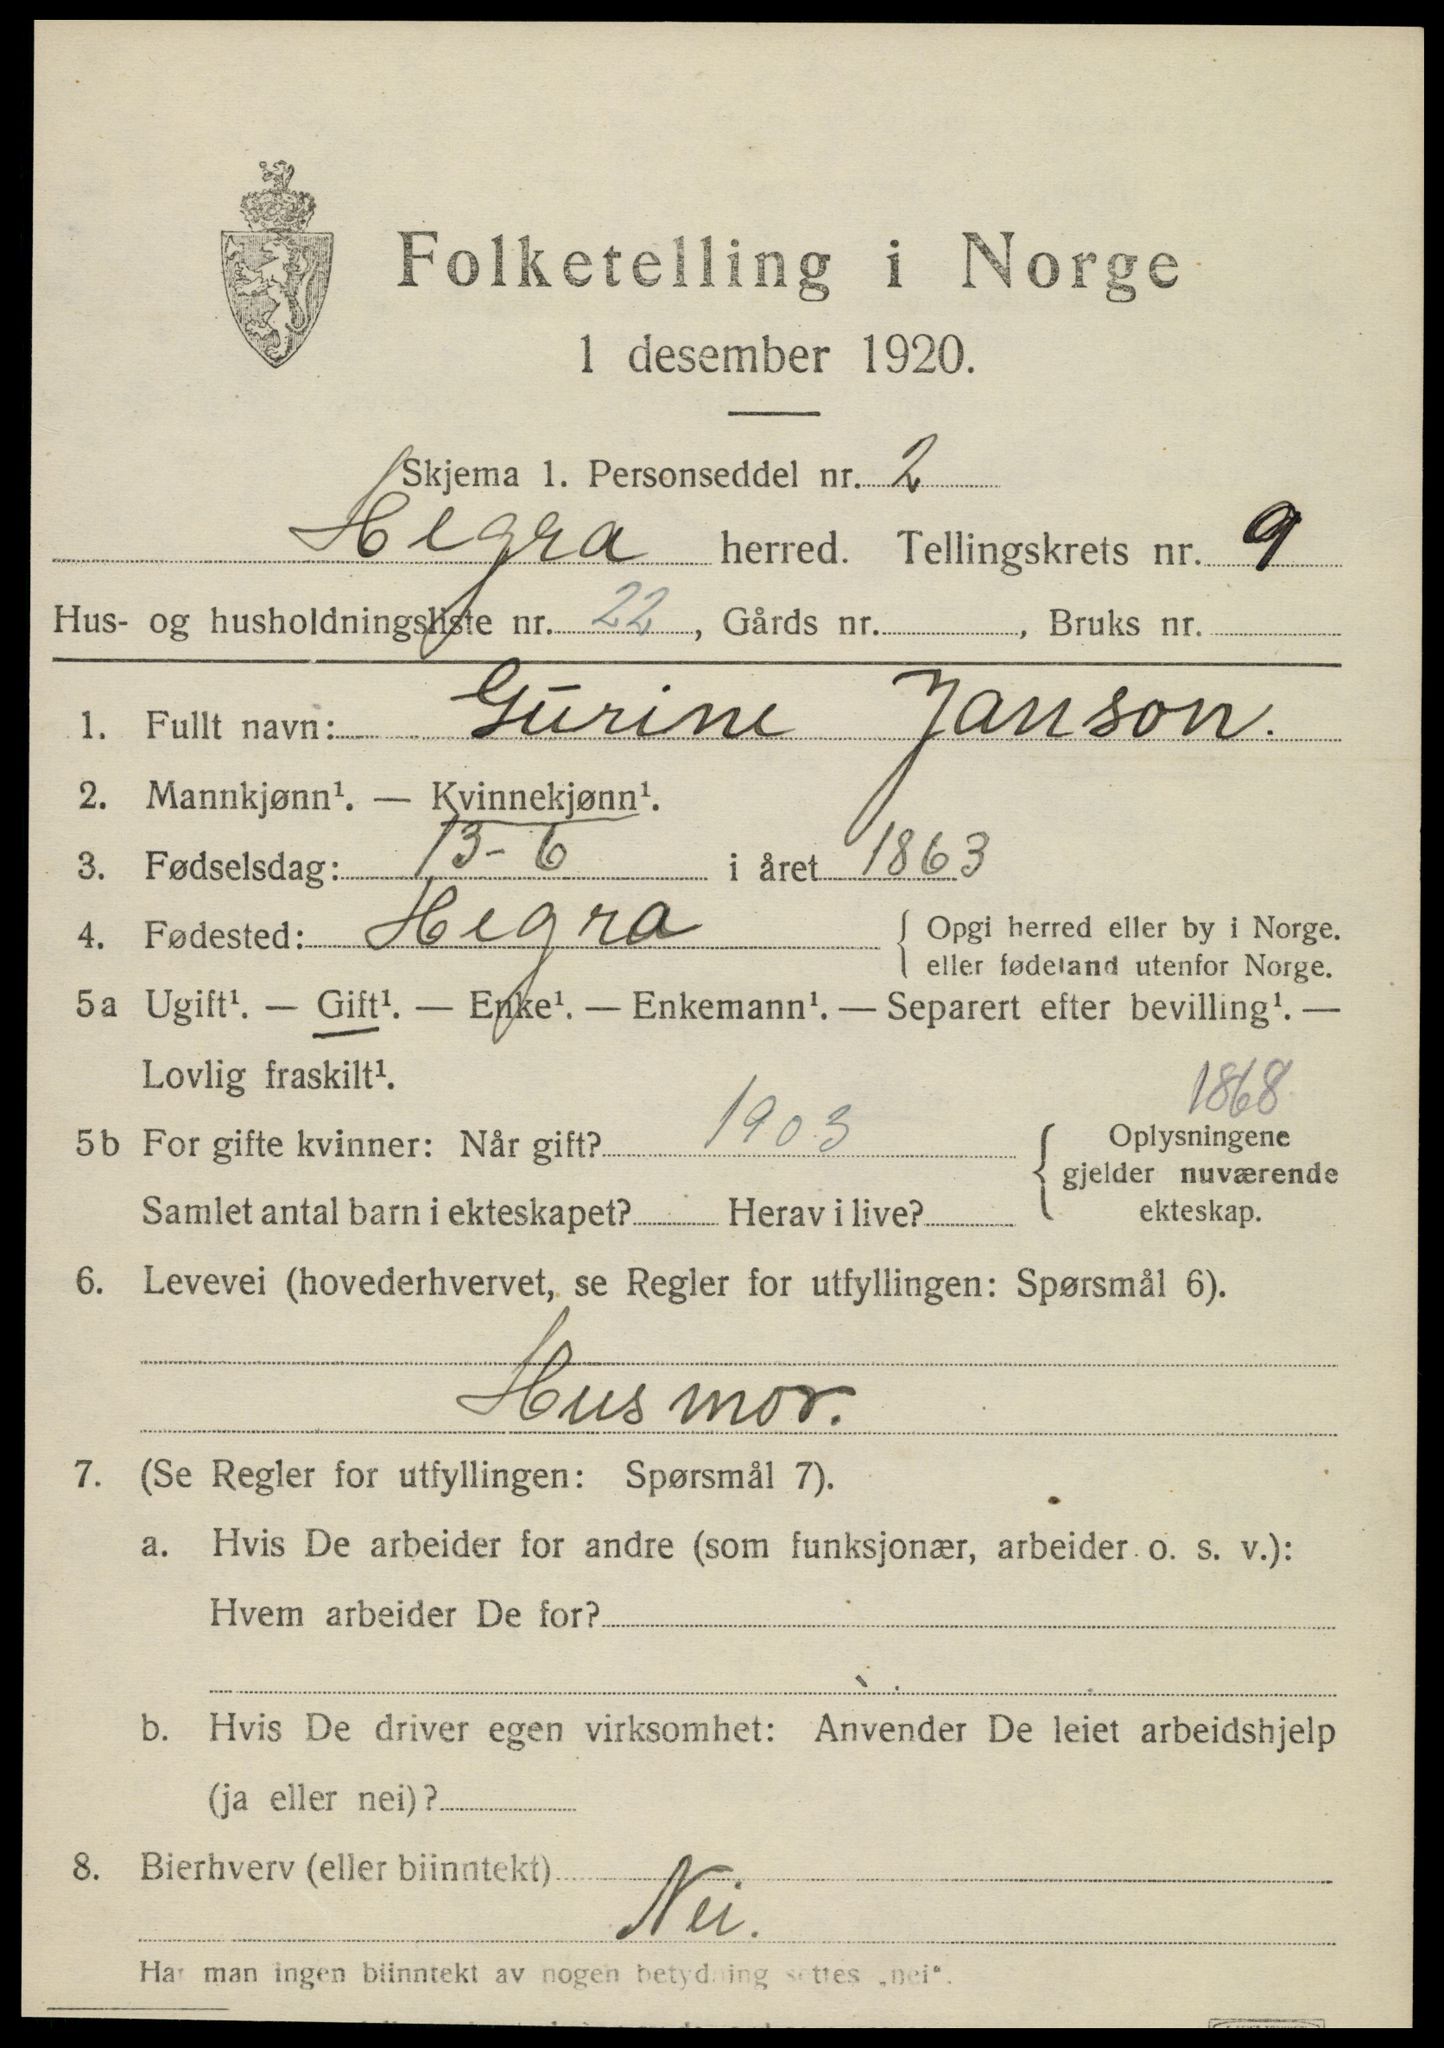 Folketelling i Norge
1 desember 1920.
Skjema 1. Personseddel nr. 2
Hegra herred. Tellingskrets nr. 9
Hus- og husholdningsliste nr. 22, Gårds nr. , Bruks nr.
1. Fullt navn: Gūrine Janson.
2. Mannkjønn¹. — Kvinnekjønn¹.
3. Fødselsdag: 13-6 i året 1863
4. Fødested: Hegra { Opgi herred eller by i Norge.
eller fødeland utenfor Norge.
5a Ugift¹. — Gift¹. — Enke¹. — Enkemann¹. — Separert efter bevilling¹. —
Lovlig fraskilt¹.
1868
5b For gifte kvinner: Når gift? 1903 { Oplysningene
gjelder nuværende
ekteskap.
Samlet antal barn i ekteskapet? Herav i live?
6. Levevei (hovederhvervet, se Regler for utfyllingen: Spørsmål 6).
Husmor.
7. (Se Regler for utfyllingen: Spørsmål 7).
a. Hvis De arbeider for andre (som funksjonær, arbeider o. s. v.):
Hvem arbeider De for?
b. Hvis De driver egen virksomhet: Anvender De leiet arbeidshjelp
(ja eller nei)?
8. Bierhverv (eller biinntekt)
Nei.
Har man ingen biinntekt av nogen betydning settes „nei“.